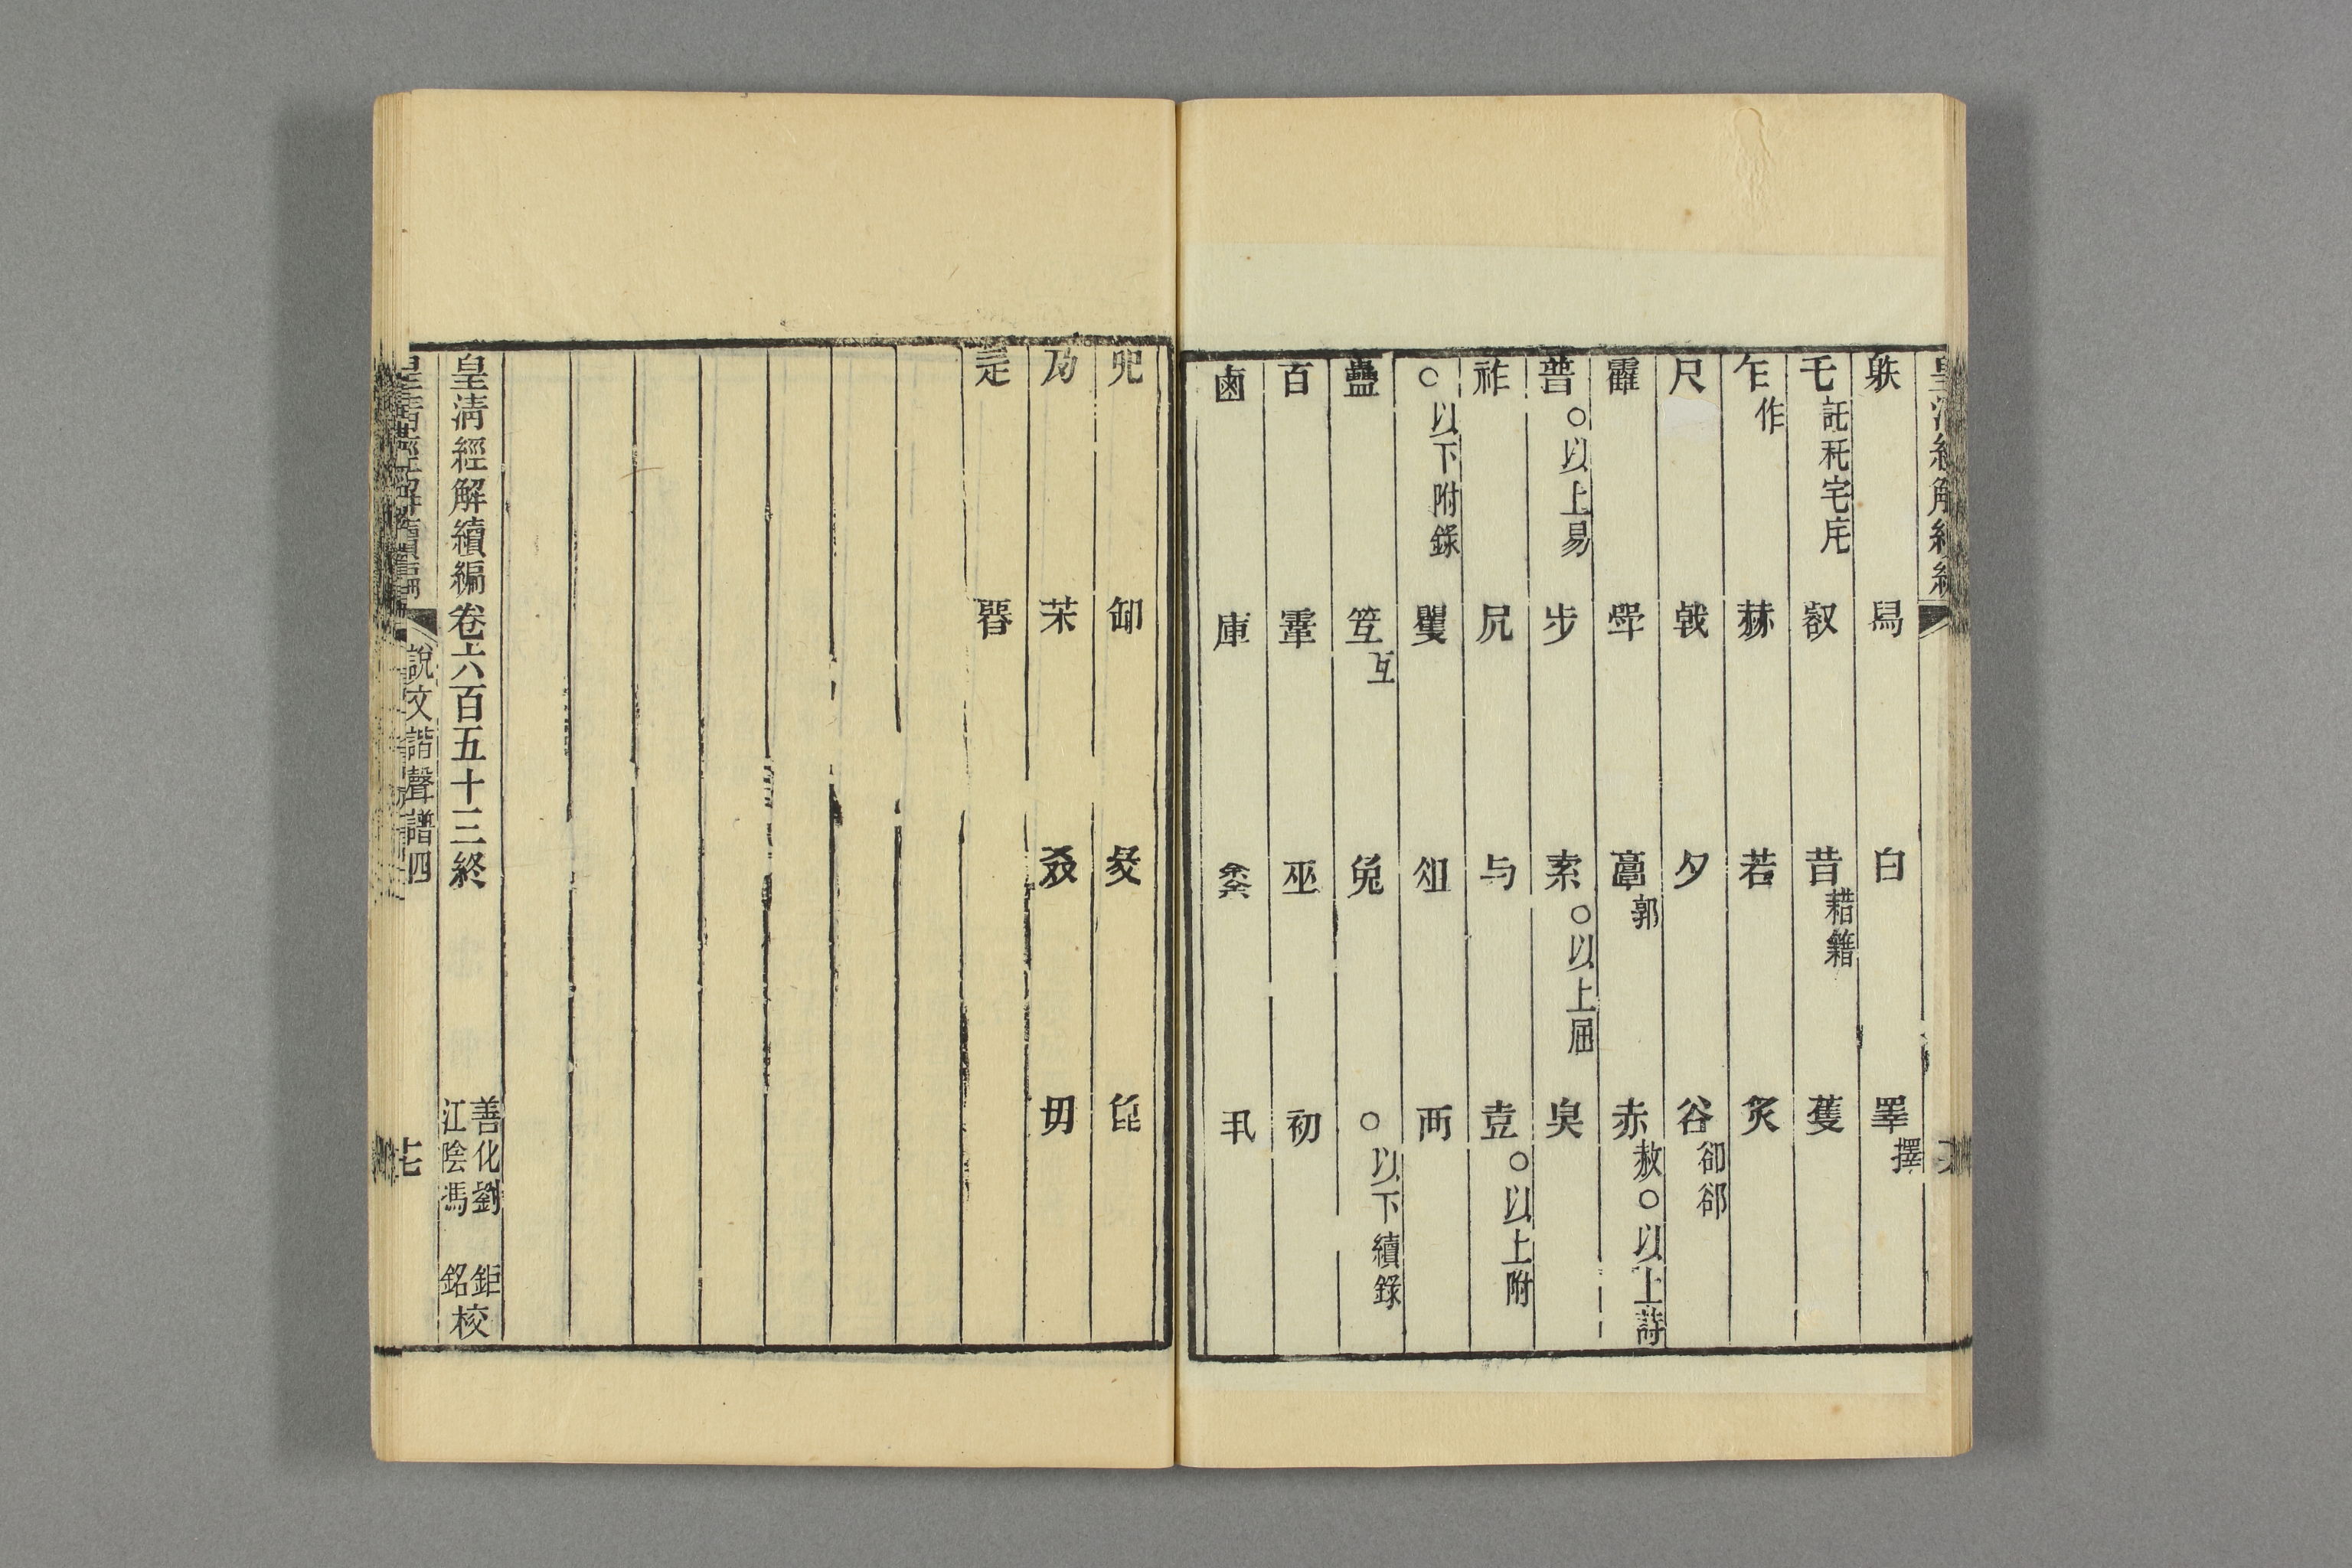 皇清經解續編
𦐇 舄 白 睪擇
乇託秅宅庑 㕡 昔耤籍 蒦
乍作 赫 若 炙
尺 㦸 夕 谷卻郤
霍 𤕌 郭 赤赦○以上詩
普○以上易 步 索○以上屈 㚖
祚 凥 与 壴○以上附
○以下附錄 矍 俎 两
蠱 笠互 兔 ○以下續錄
百 䨣 巫 初
鹵 庫 𩵋 丮
兜 卸 叒 㲋
及 茉 叕 毌
𤴓 晵
皇清經解續編卷六百五十三終 善化劉鉅 江陰馮銘 校
皇清經解續編 說文諧聲譜四 十七